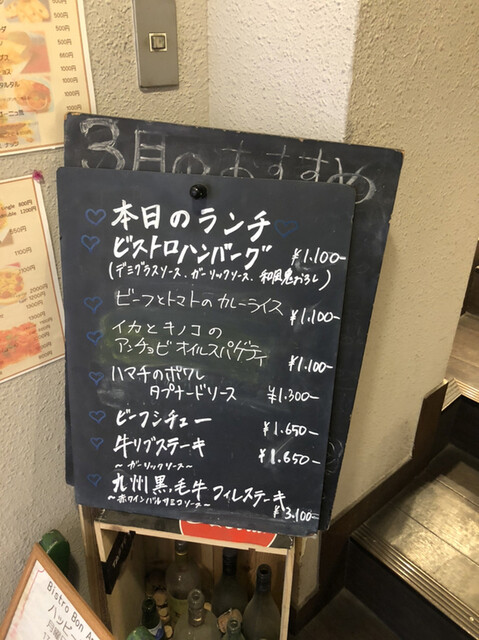 3月のおすすめ
本日のランチ
ビストロハンバーグ ¥1.100-
(デミグラスソース、ガーリックソース、和風鬼おろし)
ビーフとトマトのカレーライス ¥1.100-
イカとキノコの
アンチョビオイルスパゲティ ¥1.100-
ハマチのポワレ
タプナードソース ¥1.300-
ビーフシチュー ¥1.650-
牛リブステーキ ¥1.650-
～ガーリックソース～
九州黒毛牛フィレステーキ
～赤ワインバルサミコソース～ ¥3.100-
Bistro Bon
ハッピ